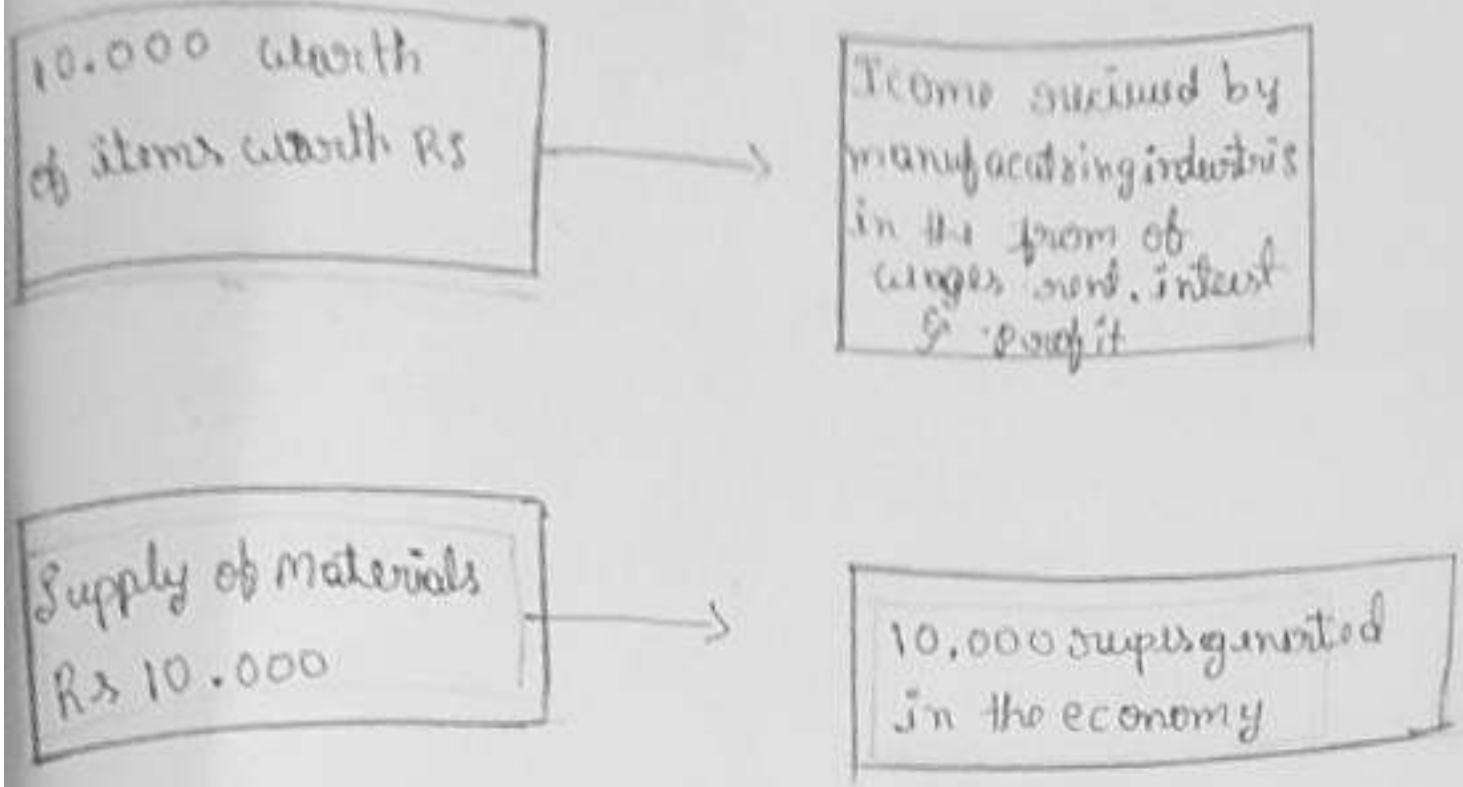 10.000 worth
of items worth Rs
Icome recived by
manufacatring industris
in the from of
wages rent. interest
& profit
Supply of Materials
Rs 10.000
10,000 rupis genrted
in the economy